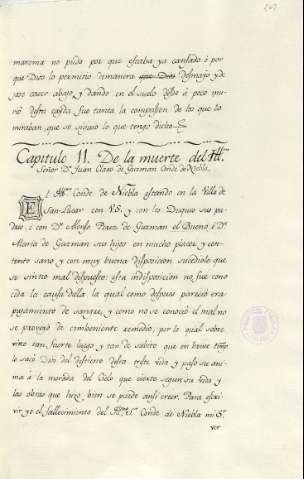 maroma no pudo por que estaba ya cansado ó por
que Dios lo permitio demanera que Dios desmayo, y de
jose caer abajo, y dando en el suelo desde á poco mu
rió desta caida, fue tanta la compasion de los que lo
miraban, que se siguio lo que tengo dicho.
Capitulo 11. De la muerte del Ill.mo
Señor D.n Juan Claros de Guzman Conde de Niebla.
El Ill.mo Conde de Niebla estando en la Villa de
San-Lucar con V.S. y con los Duques sus pa
dres, i con D.n Alonso Perez de Guzman el Bueno, i D.a
Maria de Guzman sus hijos en mucho placer, y con
tento sano, y con muy buena disposicion sucediole que
se sintió mal dispuesto: esta indisposicion no fue cono
cida la causa della la qual como despues pareció era
pujamiento de sangre, y como no se conoció el mal no
se proveyó de combeniente remedio; por lo qual sobre
vino tan fuerte luego, y tan de subito que en breve tmpo
lo sacó Dios del destierro desta triste vida y paso su ani
ma á la morada del Cielo que cierto segun su vida y
las obras que hizo, bien se puede ansi creer. Para escri
vir yo el fallecimiento del Ill.mo S.r Conde de Niebla mi S.r